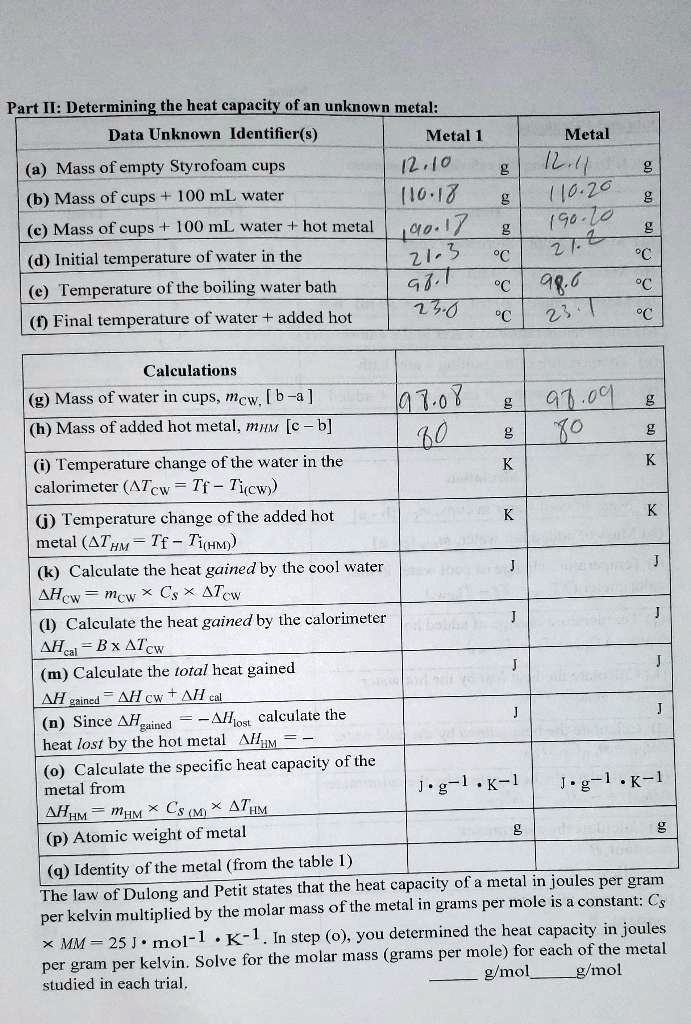 Part II: Determining the heat capacity of an unknown metal:
Data Unknown Identifier(s) Metal 1 Metal
(a) Mass of empty Styrofoam cups 12.10 g 12.11 g
(b) Mass of cups + 100 mL water 110.18 g 110.20 g
(c) Mass of cups + 100 mL water + hot metal 190.17 g 190.20 g
(d) Initial temperature of water in the 21.3 °C 21.2 °C
(e) Temperature of the boiling water bath 98.1 °C 98.6 °C
(f) Final temperature of water + added hot 23.0 °C 23.1 °C
Calculations
(g) Mass of water in cups, mCW, [ b –a ] 98.08 g 98.09 g
(h) Mass of added hot metal, mHM [c – b] 80 g 80 g
(i) Temperature change of the water in the K K
calorimeter (ΔTCW = Tf – Ti(CW))
(j) Temperature change of the added hot K K
metal (ΔTHM = Tf – Ti(HM))
(k) Calculate the heat gained by the cool water J J
ΔHCW = mCW × Cs × ΔTCW
(l) Calculate the heat gained by the calorimeter J J
ΔHcal = B x ΔTCW
(m) Calculate the total heat gained J J
ΔH gained = ΔH CW + ΔH cal
(n) Since ΔHgained = –ΔHlost calculate the J J
heat lost by the hot metal ΔHHM = –
(o) Calculate the specific heat capacity of the
metal from J • g–1 • K–1 J • g–1 • K–1
ΔHHM = mHM × Cs (M) × ΔTHM
(p) Atomic weight of metal g g
(q) Identity of the metal (from the table 1)
The law of Dulong and Petit states that the heat capacity of a metal in joules per gram
per kelvin multiplied by the molar mass of the metal in grams per mole is a constant: Cs
× MM = 25 J • mol-1 • K-1. In step (o), you determined the heat capacity in joules
per gram per kelvin. Solve for the molar mass (grams per mole) for each of the metal
studied in each trial. _____ g/mol_____g/mol